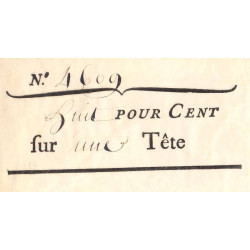 N.º 4609
Huit POUR CENT
ſur une Tête